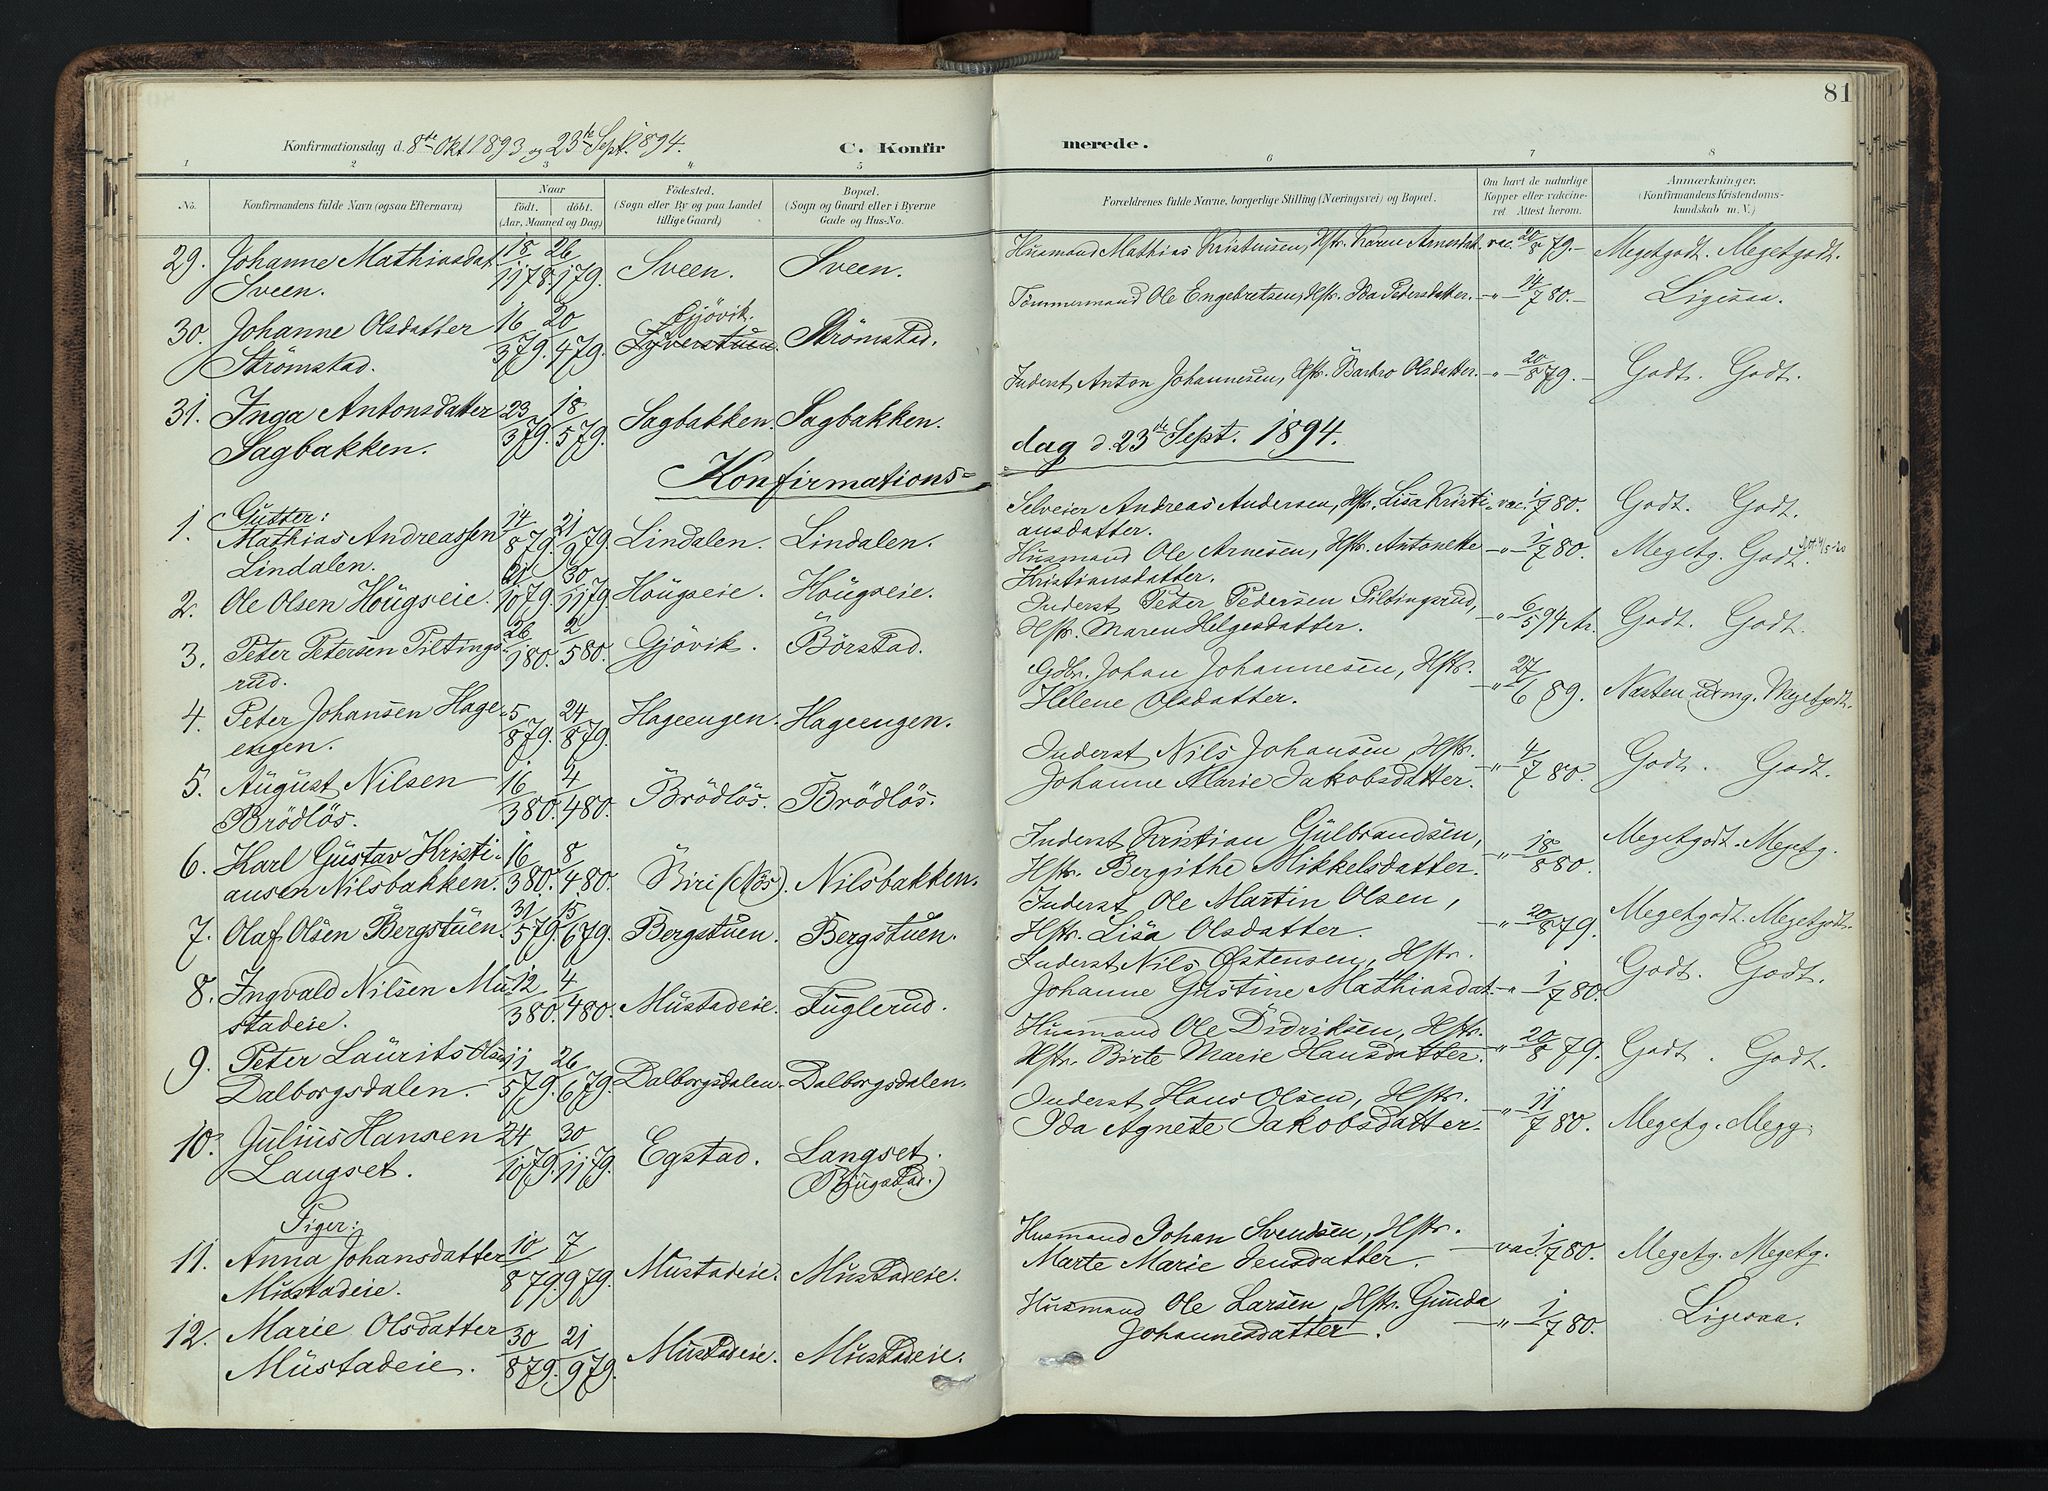 81
Konfirmationsdag d. 8de Okt 1893 og 23de Sept. 1894.
C. Konfir
merede.
1 2 3 4 5 6 7 8
No.
Konfirmandens fulde Navn (ogsaa Efternavn)
Naar
født. døbt.
(Aar, Maaned og Dag)
Fødested.
(Sogn eller By og paa Landet
tillige Gaard.)
Bopæl.
(Sogn og Gaard eller i Byerne
Gade og Hus-No.
Forældrenes fulde Navne, borgerlige Stilling (Næringsvei) og Bopæl.
Om havt de naturlige
Kopper eller vakcine-
ret Attest herom.
Anmærkninger.
(Konfirmandens Kristendoms-
kundskab m. V.)
29. Johanne Mathiasdat. 18/11 78. 26/1 79. Sveen. Sveen. Husmand Mathias Kristensen, Hstr. Karen Arnesdat. vac. 20/8 79. Megetgodt. Megetgodt.
Sveen.
30. Johanne Olsdatter 16/3 79. 20/4 79. Gjövik. Strömstad. Tömmermand Ole Engebretsen, Hstr. Ida Petersdatter. " 14/7 80. Ligesaa.
Strömstad.
31. Inga Antonsdatter 23/3 79. 18/5 79. Sagbakken. Sagbakken. Inderst Anton Johannesen, Hstr. Barbro Olsdatter. " 20/8 79. Godt. Godt.
Sagbakken.
Konfirmations-
dag d. 23de Sept. 1894.
Gutter:
1. Mathias Andreassen 14/8 79. 21/9 79. Lindalen. Lindalen. Selveier Andreas Andersen, Hstr. Lisa Kristi- vac. 1/7 80. Godt. Godt.
Lindalen. ansdatter.
2. Ole Olsen Höugseie. 21/10 79. 30/11 79. Höugseie. Höugseie. Husmand Ole Arnesen, Hstr. Antonette " 1/7 80. Megetg. Godt.
Kristiansdatter.
3. Peter Petersen Piltings- 26/1 80. 2/5 80. Gjövik. Börstad. Inderst Peter Pedersen Piltingsrud, " 6/5 94 Godt. Godt.
rud. Hstr. Maren Helgesdatter.
4. Peter Johansen Hage- 5/8 79. 24/8 79. Hageengen. Hageengen. Gdbr. Johan Johannesen, Hstr. " 27/6 89. Næsten udmg. Megetgodt.
engen. Helene Olsdatter.
5. August Nilsen 16/3 80. 4/4 80. Brödlös. Brödlös. Inderst Nils Johansen, Hstr. " 4/7 80. Godt. Godt.
Brödlös. Johanne Marie Jakobsdatter.
6. Karl Gustav Kristi- 16/3 80. 8/4 80. Biri (Næs). Nilsbakken. Inderst Kristian Gulbrandsen, " 18/8 80. Megetgodt. Megetg.
ansen Nilsbakken. Hstr. Bergithe Mikkelsdatter.
7. Olaf Olsen Bergstuen. 31/5 79. 15/6 79. Bergstuen. Bergstuen. Inderst Ole Martin Olsen, " 20/8 79. Megetgodt. Megetgodt.
Hstr. Lisa Olsdatter.
8. Ingvald Nilsen Mu- 12/3 80. 4/4 80. Mustadeie. Fuglerud. Inderst Nils Østensen, Hstr. " 1/7 80. Godt. Godt.
stadeie. Johanne Gustine Mathiasdat.
9. Peter Laurits Olsen 11/5 79. 26/6 79. Dalborgsdalen. Dalborgsdalen. Husmand Ole Didriksen, Hstr. " 20/8 79. Godt. Godt.
Dalborgsdalen. Hstr. Birte Marie Hansdatter.
10. Julius Hansen 24/10 79. 30/11 79. Egstad. Langset. Inderst Hans Olsen, Hstr. " 11/7 80. Megetg. Megg
Langset. Ida Agnete Jakobsdatter.
Piger:
11. Anna Johansdatter 10/8 79. 7/9 79. Mustadeie. Mustadeie. Husmand Johan Svendsen, Hstr. vac. 1/7 80. Megetg. Megetg.
Mustadeie. Marte Marie Jensdatter.
12. Marie Olsdatter 30/8 79. 21/9 79. Mustadeie. Mustadeie. Husmand Ole Larsen, Hstr. Gunda " 1/7 80. Ligesaa.
Mustadeie. Johannesdatter.